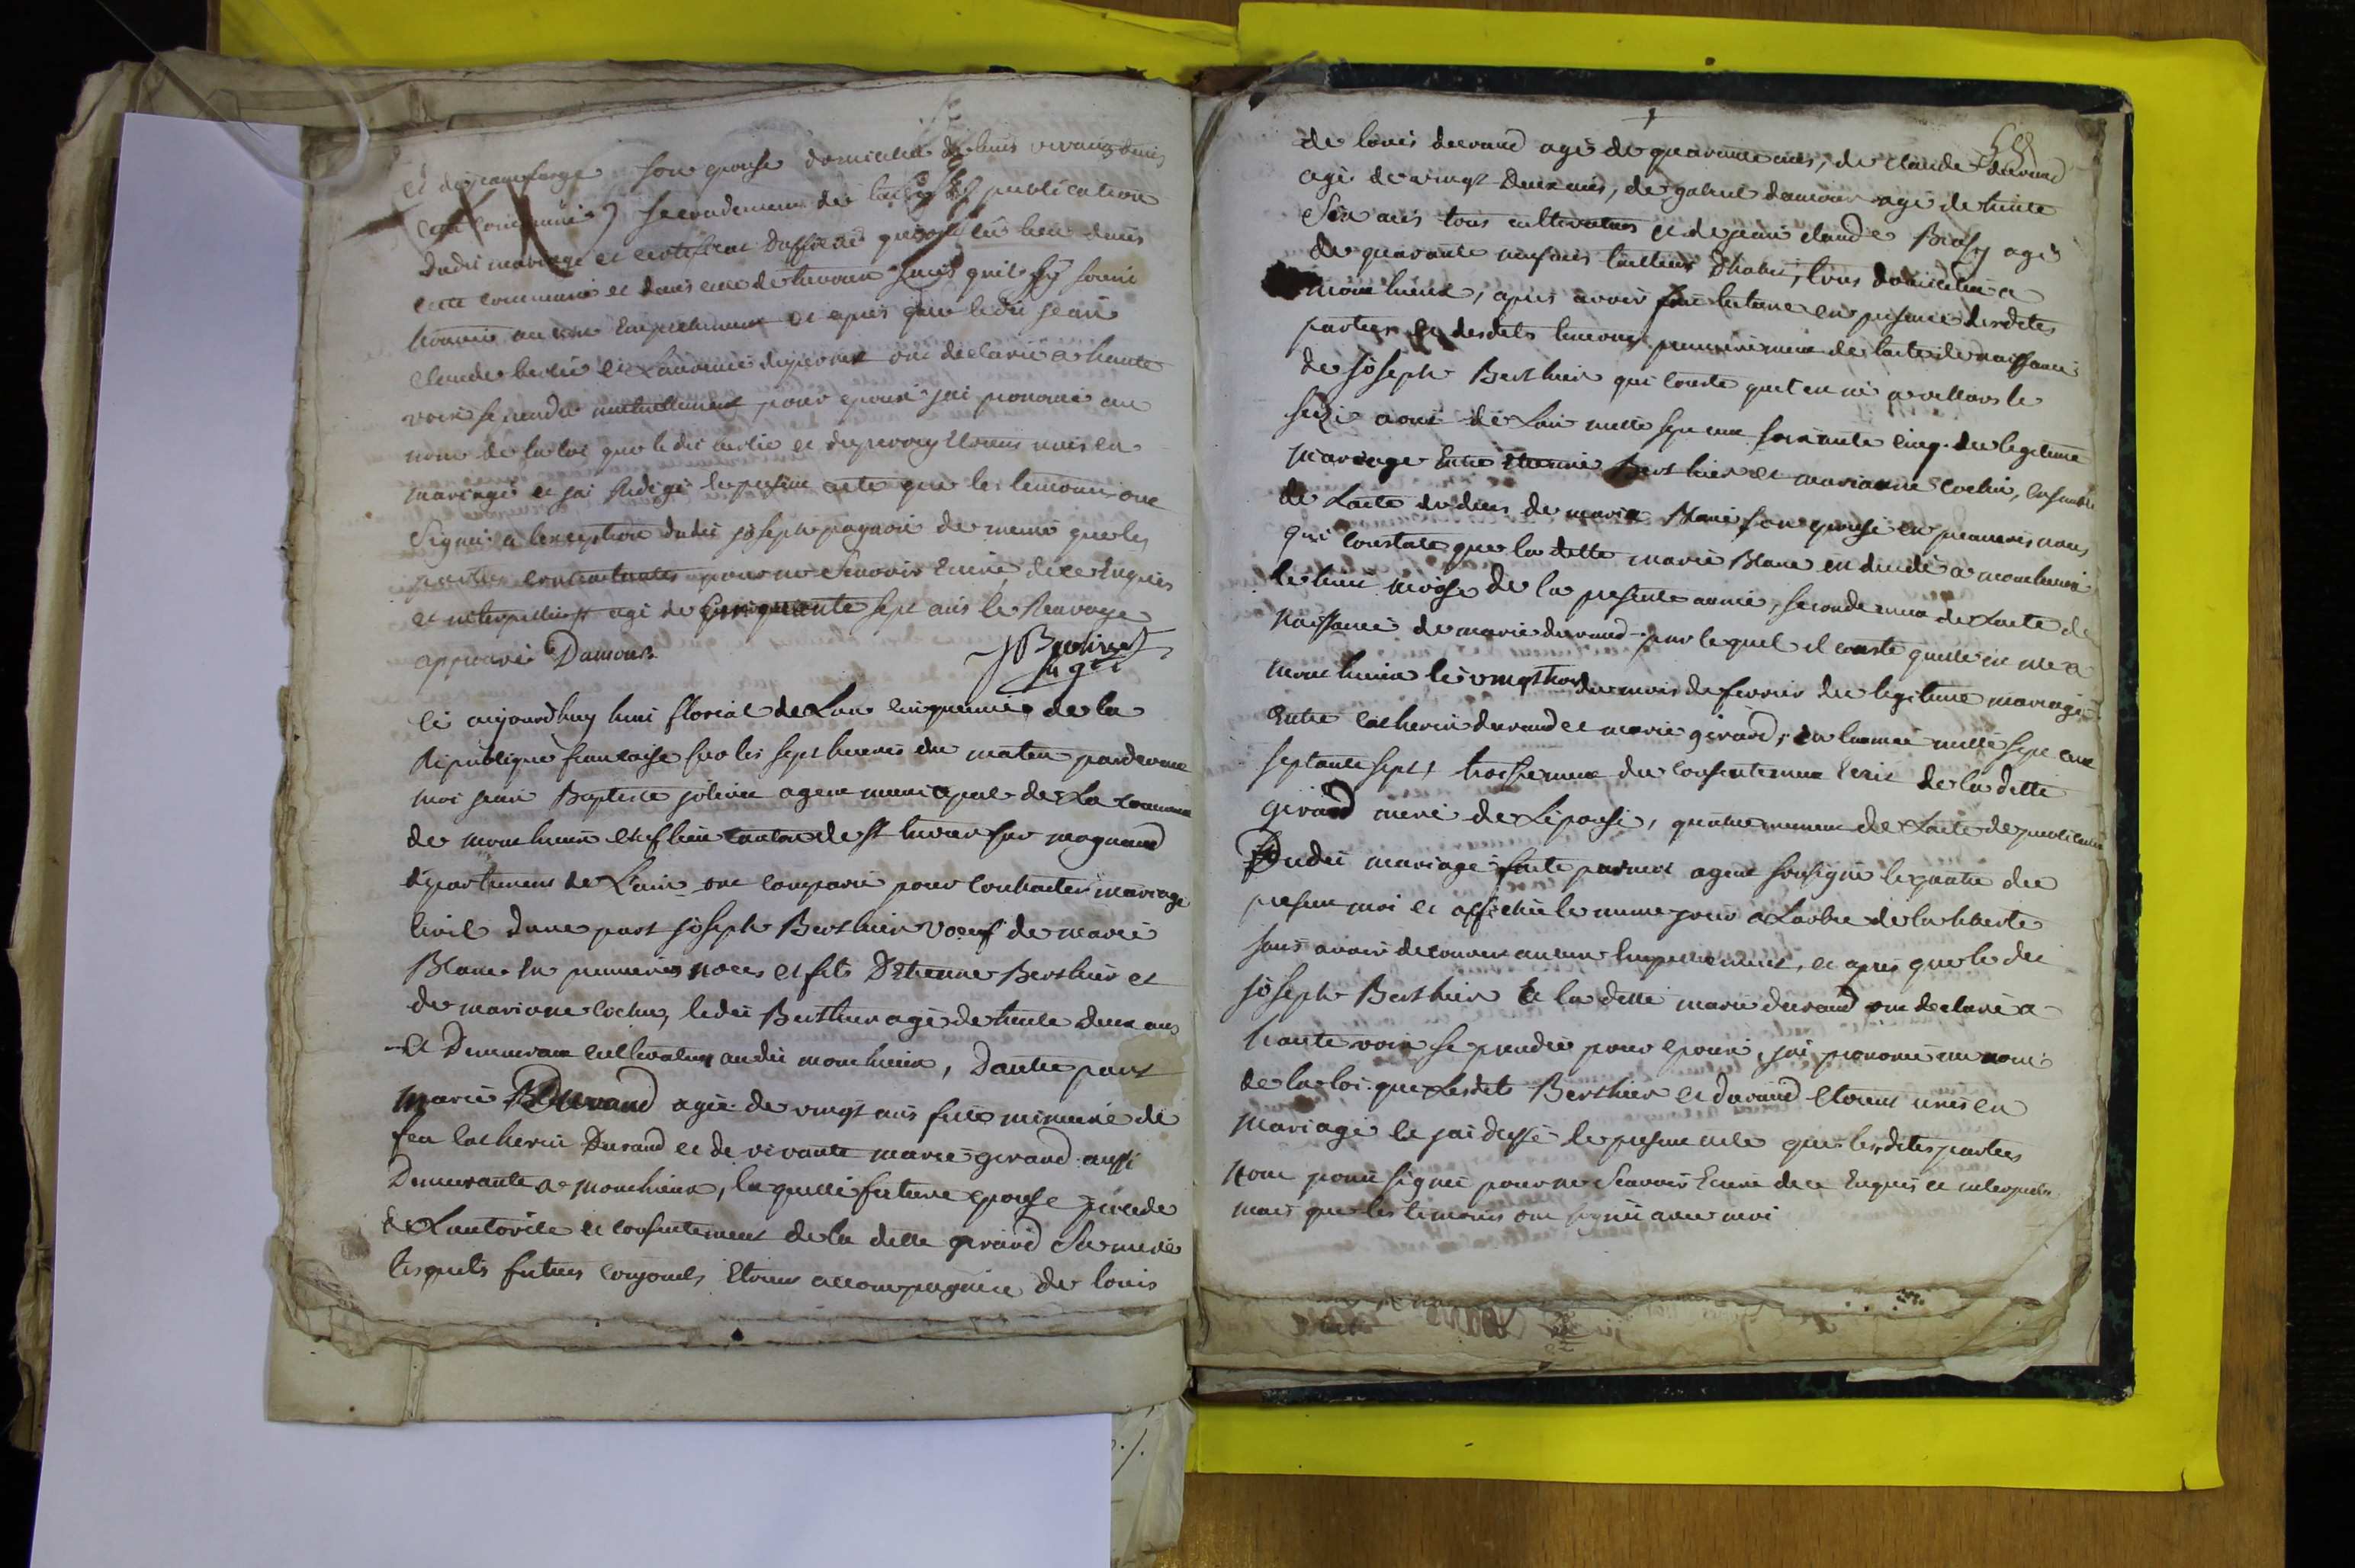 et de jeanforge son epouse domiciliés de leurs vivans dans
cette commune) secondement de publication
dudit mariage et certificat qui ont eu lieu dans
cette commune et dans celle de sans quil sy soient
trouvés aucun Empechement et apres que ledit jean
Claude berlié et Laurence duperray ont declaré a haute
voix se prendre mutuellement pour epoux jai prononcé au
nom de la loi que ledit berlié et duperray Etoient unis en
mariage et jai Redigé le present acte que les temoins ont
Signé a lexception dudit joseph pagnon de meme que les
parties contractantes pour ne Scavoir Ecrire de ce Enquis
et interpellés agé de Cinquante sept ans le Renvoye
approuvé Damour
ce aujourdhuy huit floréal de Lan cinquieme de la
Republique francaise sur les sept heures du matin pardevant
moi jean Baptiste jolivet agent municipal de La commune
de monthieux chef lieu canton de st trivier sur mognand
département de L'ain ont comparu pour contracter mariage
civil dune part joseph Berthier voeuf de marie
Blanc en premieres noces et fils D'Etienne Berthier et
de mariane cochu, ledit Berthier agé de trente deux ans
et Demeurant cultivateur audit monthieux, Dautre part
marie Durand agée de vingt ans fille mineure de
feu catherin Durand et de vivante marie girard aussi
Demeurante a monthieux, laquelle future epouse procede
de Lautorité et consentement de la ditte girard Sa mere
lesquels futurs conjoints Etoient accompagnés de louis
58
de louis durand agé de quarante ans, de claude durand
agé de vingt Deux ans, de gabriel damour agé de trente
Six ans tous cultivateurs et de jean claude Brossy agé
de quarante neuf ans tailleur Dhabit, tous domiciliés a
monthieux, apres avoir fait lecture en presence desdites
parties et desdits temoins premierement de lacte de naissance
de joseph Berthier qui conste quil en né a villars le
seize aout de Lan mille sept cent soixante cinq du legitime
mariage Entre Etienne Berthier et marianne Cochu, Ensemble
de Lacte de deces de marie Blanc son epouse en premieres noces
qui constate que la ditte marie Blanc en decedé a monthieux
le huit nivose de la presente année, secondement de Lacte de
naissance de marie durand par lequel il conste quelle en née a
monthieux le vingt trois du mois de fevrier du legitime mariage
Entre catherin durand et marie girard, en lannée mille sept cent
septante sept, troisiemement du consentement Ecrit de la ditte
girard mere de L'epouse, quatriemement de Lacte de publication
Dudit mariage faite par moi agent soussigné le quatre du
present moi et affichée le meme jour a Larbre de la liberté
sans avoir decouvert aucun Empechement, et apres que ledit
joseph Berthier et la ditte marie durand ont declaré a
haute voix se prendre pour epoux, jai prononcé au nom
de la loi que Lesdits Berthier et durand etoient unis en
mariage et jai dressé le present acte que lesdites parties
nont point signé pour ne Scavoir Ecrire de ce Enquis et interpellés
mais que les temoins ont signé avec moi